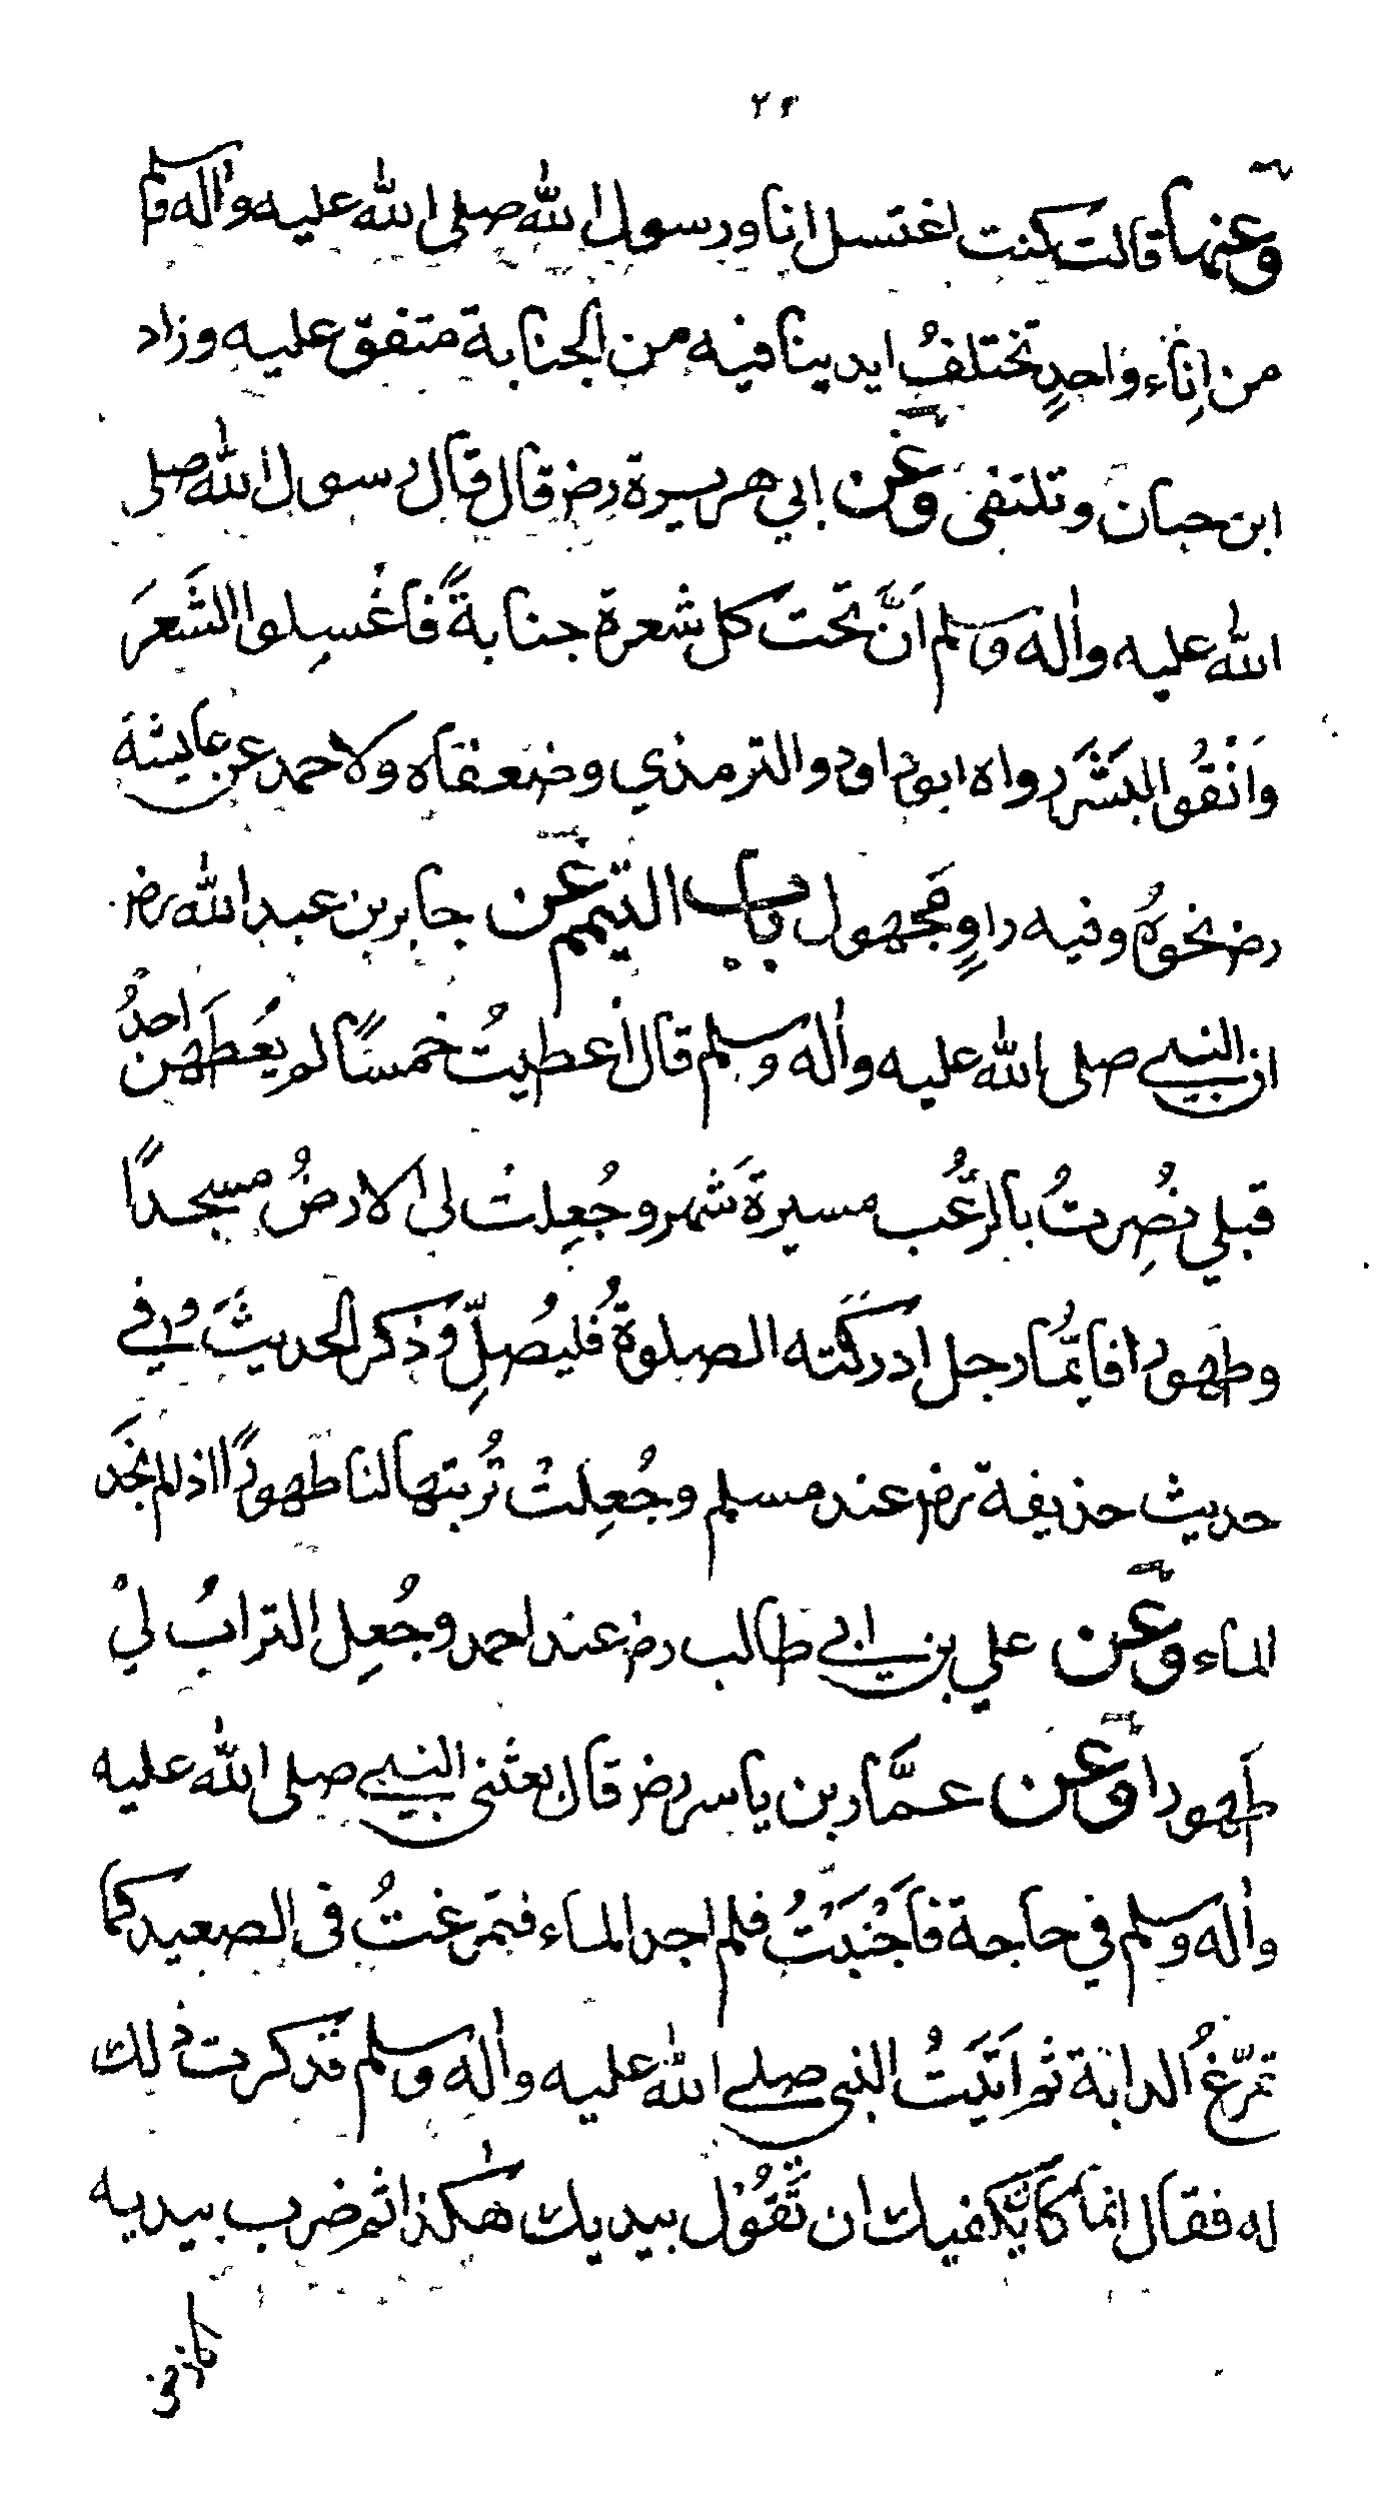 ٢٤
وعنها قالت كنت اغتسل انا ورسول الله صلى الله عليه واله وسلم
من اِناء واحدٍ تختلفُ ايدينا فيه من الجنابة متفق عليه وزاد
ابن حبان وتلتقى وعن ابي هريرة رضـ قال قال رسول الله صلى
الله عليه واله وسلم اَنَّ تحت كل شعرة جنابةً فاغْسِلوا الشَعرَ
وَانْقُو البَشَرَ رواه ابوداود والترمذي وضعفاه ولاحمد عن عايشة
رضـ نحوهُ وفيه راوٍ مجهول باب التيمم عن جابر بن عبد الله رضـ
ان النبي صلى الله عليه واله وسلم قال اُعطيتُ خمسًا لم يُعطَهن احدٌ
قبلي نصُرِتُ بالرُّعُب مسيرة شَهر وجُعِلت لي الارضُ مسجدًا
وطَهورا فايُّما رجل ادركَتْه الصلوةُ فليُصَلِّ وذكر الحديثَ وفي
حديث حذيفة رضـ عند مسلم وجُعِلتْ تُربتها لنا طَهورًا اذا لم نجَد
الماء وعن علي بن ابي طالب رضـ عند احمد وجُعِل الترابُ ليْ
طَهورا وعن عمَّار بن ياسر رضـ قال بعثنى النبي صلى الله عليه
واله وسلم في حاجة فاَجْنَبْتُ فلم اجد الماء فتمَرغتُ فى الصعيد كما
تمرّغُ الدابة ثم اَتَيْتُ النبى صلے الله عليه واله وسلم فذكرت ذلك
له فقال انما كا يَكفيك ان تَقُوْل بيديك هٰكذا ثم ضرب بيديه